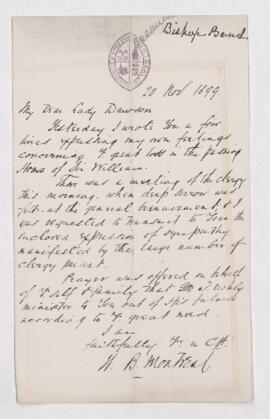 Bishop Bond
20 Nov 1899
My Dear Lady Dawson
Yesterday I wrote you a few
lines expressing my own feelings
concerning yr great loss in the passing
Home of Sir William.
There was a meeting of the clergy
this morning, when deep sorrow was
felt at the general bereavement, & I
was requested to transmit to you the
inclosed expression of sympathy
manifested by the large number of
clergy present.
Prayer was offered on behalf
of yrself & family that God wd richly
minister to you out of His fulness
according to yr great need.
I am
faithfully yrs in Ct:
W. B. Montreal